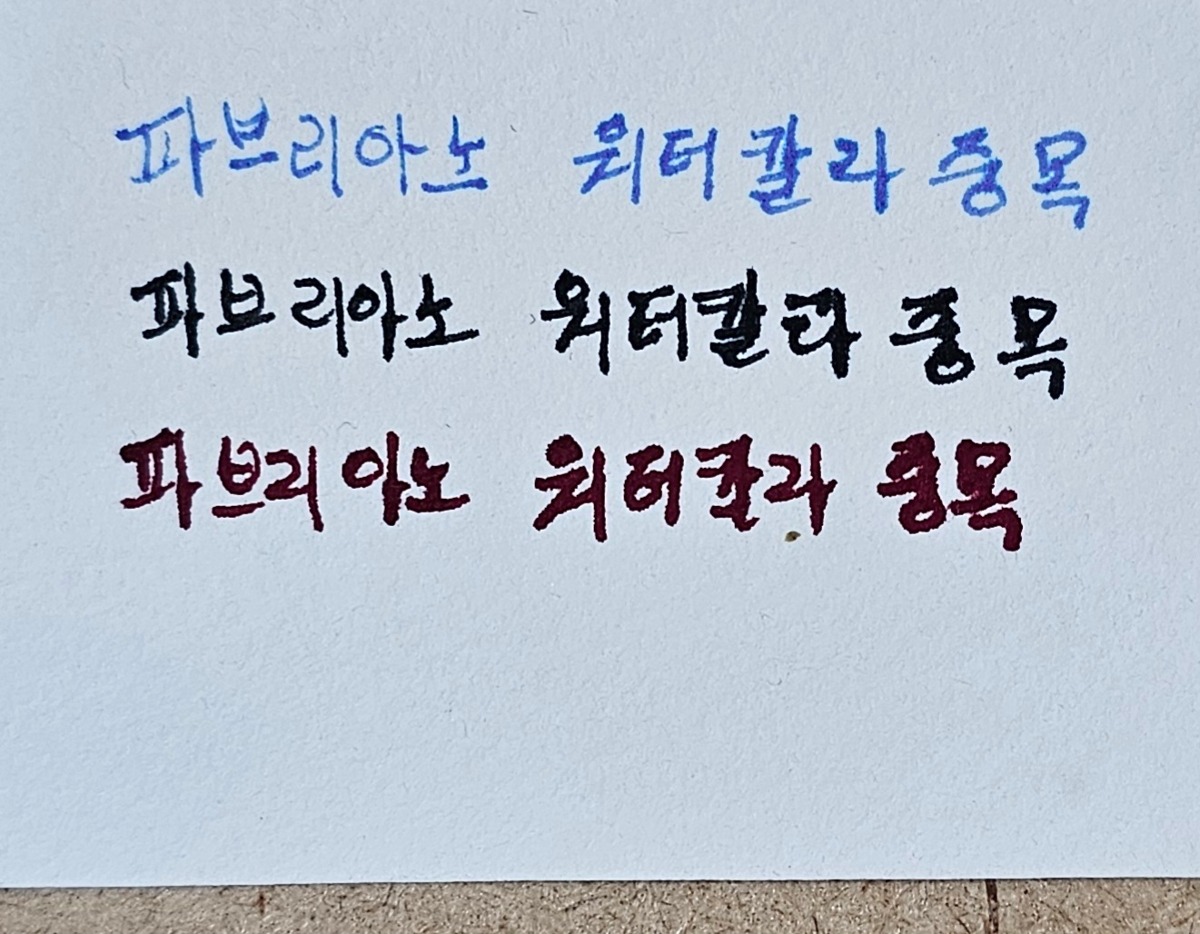 파브리아노 워터칼라 중목
파브리아노 워터칼라 중목
파브리아노 워터칼라 중목